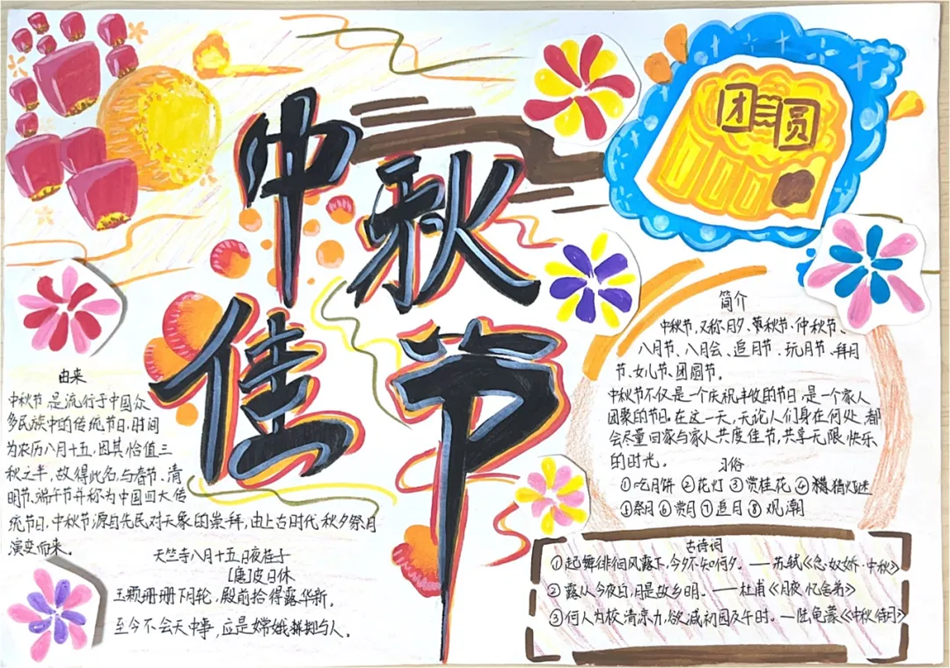 中秋
佳节
团圆
简介
中秋节,又称月夕、秋节、仲秋节、
八月节、八月会、追月节、玩月节、拜月
节、女儿节、团圆节。
中秋节不仅是一个庆祝丰收的节日,是一个家人
团聚的节日。在这一天,无论人们身在何处,都
会尽量回家与家人共度佳节,共享无限快乐
的时光。
习俗
①吃月饼 ②花灯 ③赏桂花 ④猜灯谜
⑤祭月 ⑥赏月 ⑦追月 ⑧观潮
由来
中秋节是流行于中国众
多民族中的传统节日,时间
为农历八月十五,因其恰值三
秋之半,故得此名,与春节、清
明节、端午节并称为中国四大传
统节日,中秋节源自先民对天象的崇拜,由上古时代秋夕祭月
演变而来。
天竺寺八月十五日夜桂子
[唐]皮日休
玉颗珊珊下月轮,殿前拾得露华新。
至今不会天中事,应是嫦娥掷与人。
古诗词
①起舞徘徊风露下,今夕不知何夕。——苏轼《念奴娇·中秋》
②露从今夜白,月是故乡明。——杜甫《月夜忆舍弟》
③何人为校清凉力,欲减初圆及午时。——陆龟蒙《中秋待月》